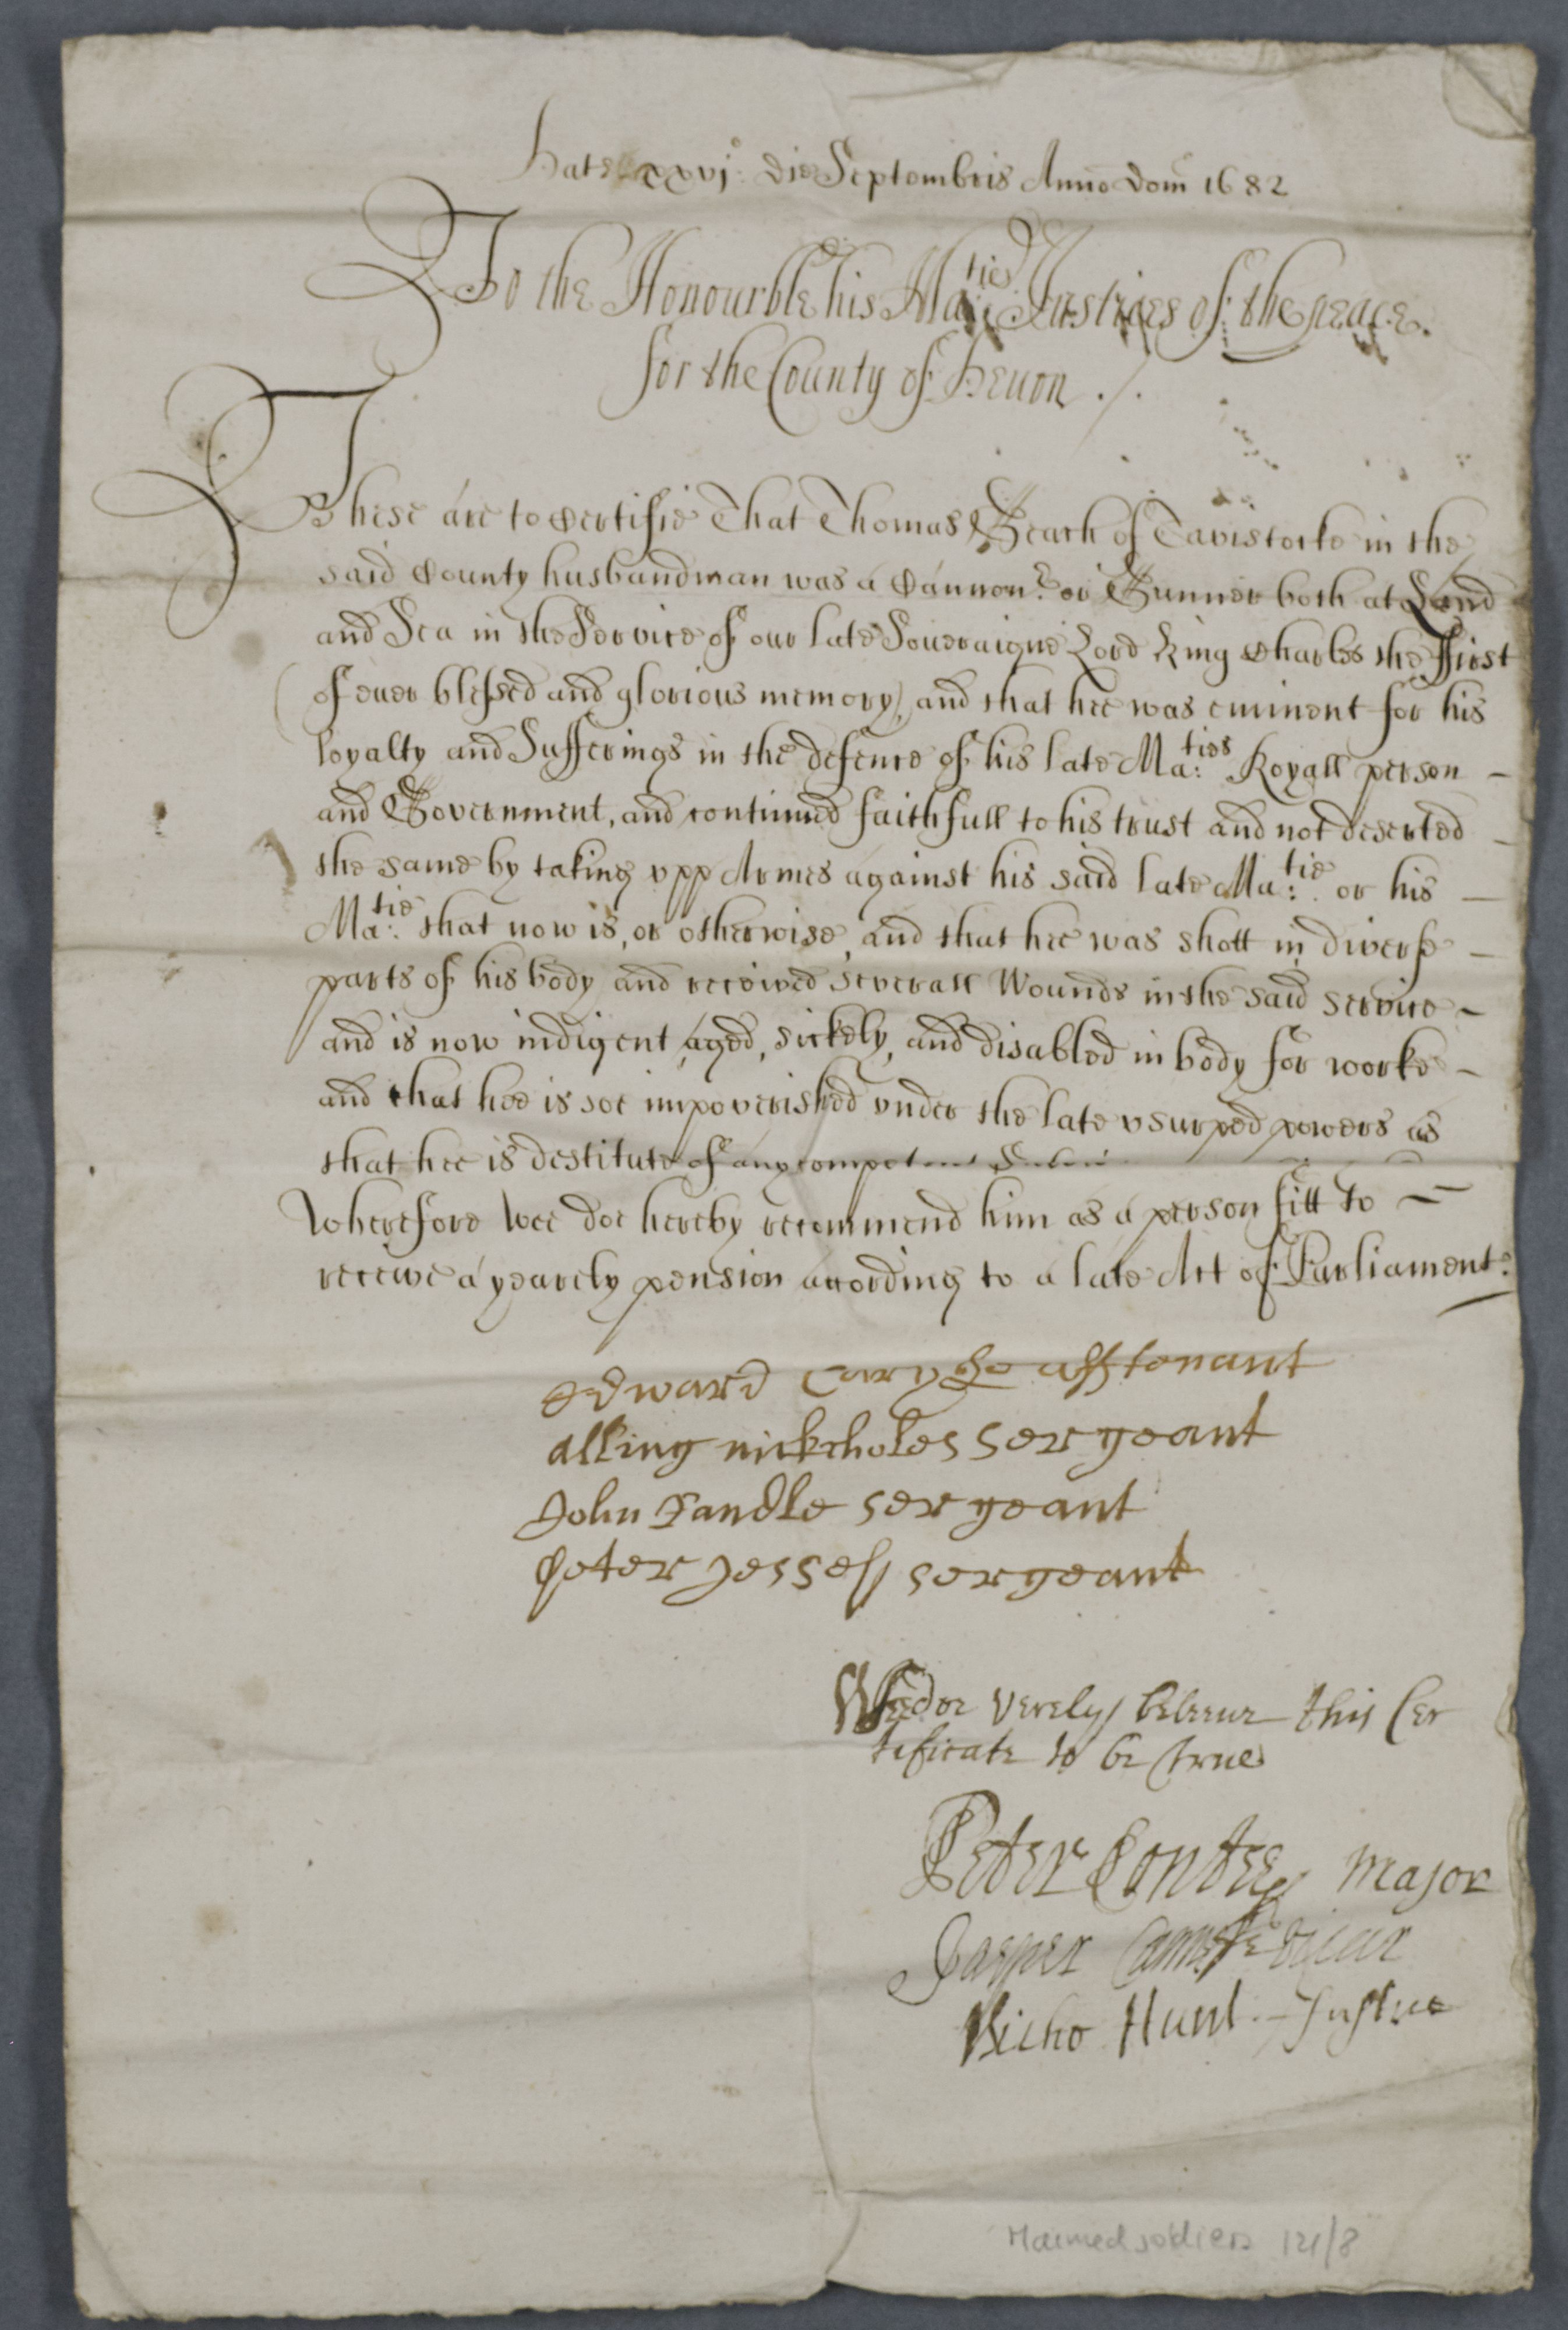 Dat xxvjo: die Septembris Anno Dom 1682
To the Honourble his Ma:ties Justices of the peace.
for the County of Deuon ./.
These are to Certifie That Thomas Geach of Tavistocke in the
said County husbandman was a Cannonr. or Gunner both at Land
and Sea in the Service of our late Soueraigne Lord King Charles the ffirst
(of ever blessed and glorious memory) and that hee was eminent for his
loyalty and Sufferings in the defence of his late Ma:ties Royall person -
and Government, and continued faithfull to his trust and not deserted -
the same by taking vpp Armes against his said late Ma:tie or his -
Ma:tie that now is, or otherwise, and that hee was shott in diverse -
parts of his body and received severall Wounds in the said service -
and is now indigent, aged, sickely, and disabled in body for worke -
and that hee is soe impoverished vnder the late vsurped powers as
that hee is destitute of any competent
Wherefore Wee doe hereby recommend him as a person fitt to -
receive a yearely pension according to a late Act of Parliament.
Edward Cary
alling nickcholes sergeant
John sergeant
Peter Jessep sergeant
Wee doe verely beleeue this Cer
tificate to be true
Peter Contee Major
Jasper Cann vicar
Richo Hunt - Justice
Maimed soldiers 121/8